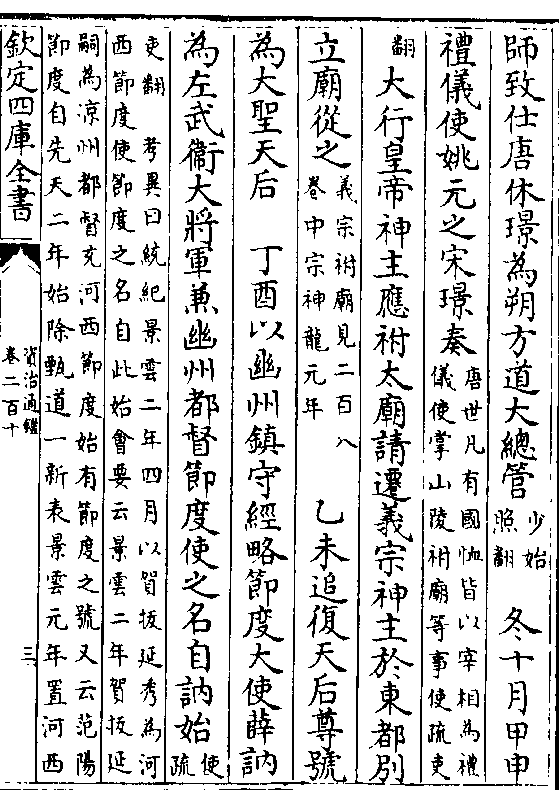 師致仕唐休璟為朔方道大總管少始照翻 冬十月甲申
禮儀使姚元之宋璟奏唐世凡有國恤皆以宰相為禮儀使掌山陵祔廟等事使疏吏
翻大行皇帝神主應祔太廟請遷義宗神主於東都别
立廟從之義宗祔廟見二百八卷中宗神龍元年 乙未追復天后尊號
為大聖天后 丁酉以幽州鎮守經略節度大使薛訥
為左武衞大將軍兼幽州都督節度使之名自訥始使疏
吏翻 考異曰統紀景雲二年四月以賀拔延秀為河西節度使節度之名自此始會要云景雲二年賀拔延
嗣為凉州都督充河西節度始有節度之號又云范陽節度自先天二年始除甄道一新表景雲元年置河西
欽定四庫全書
資治通鑑
卷二百十
三